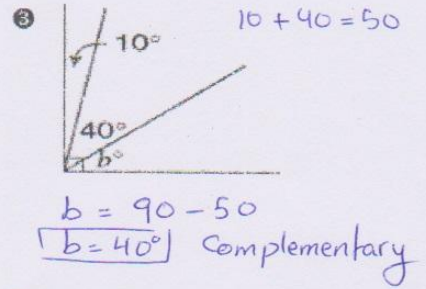 ❸
10 + 40 = 50
10°
40°
b°
b = 90 - 50
b = 40° Complementary